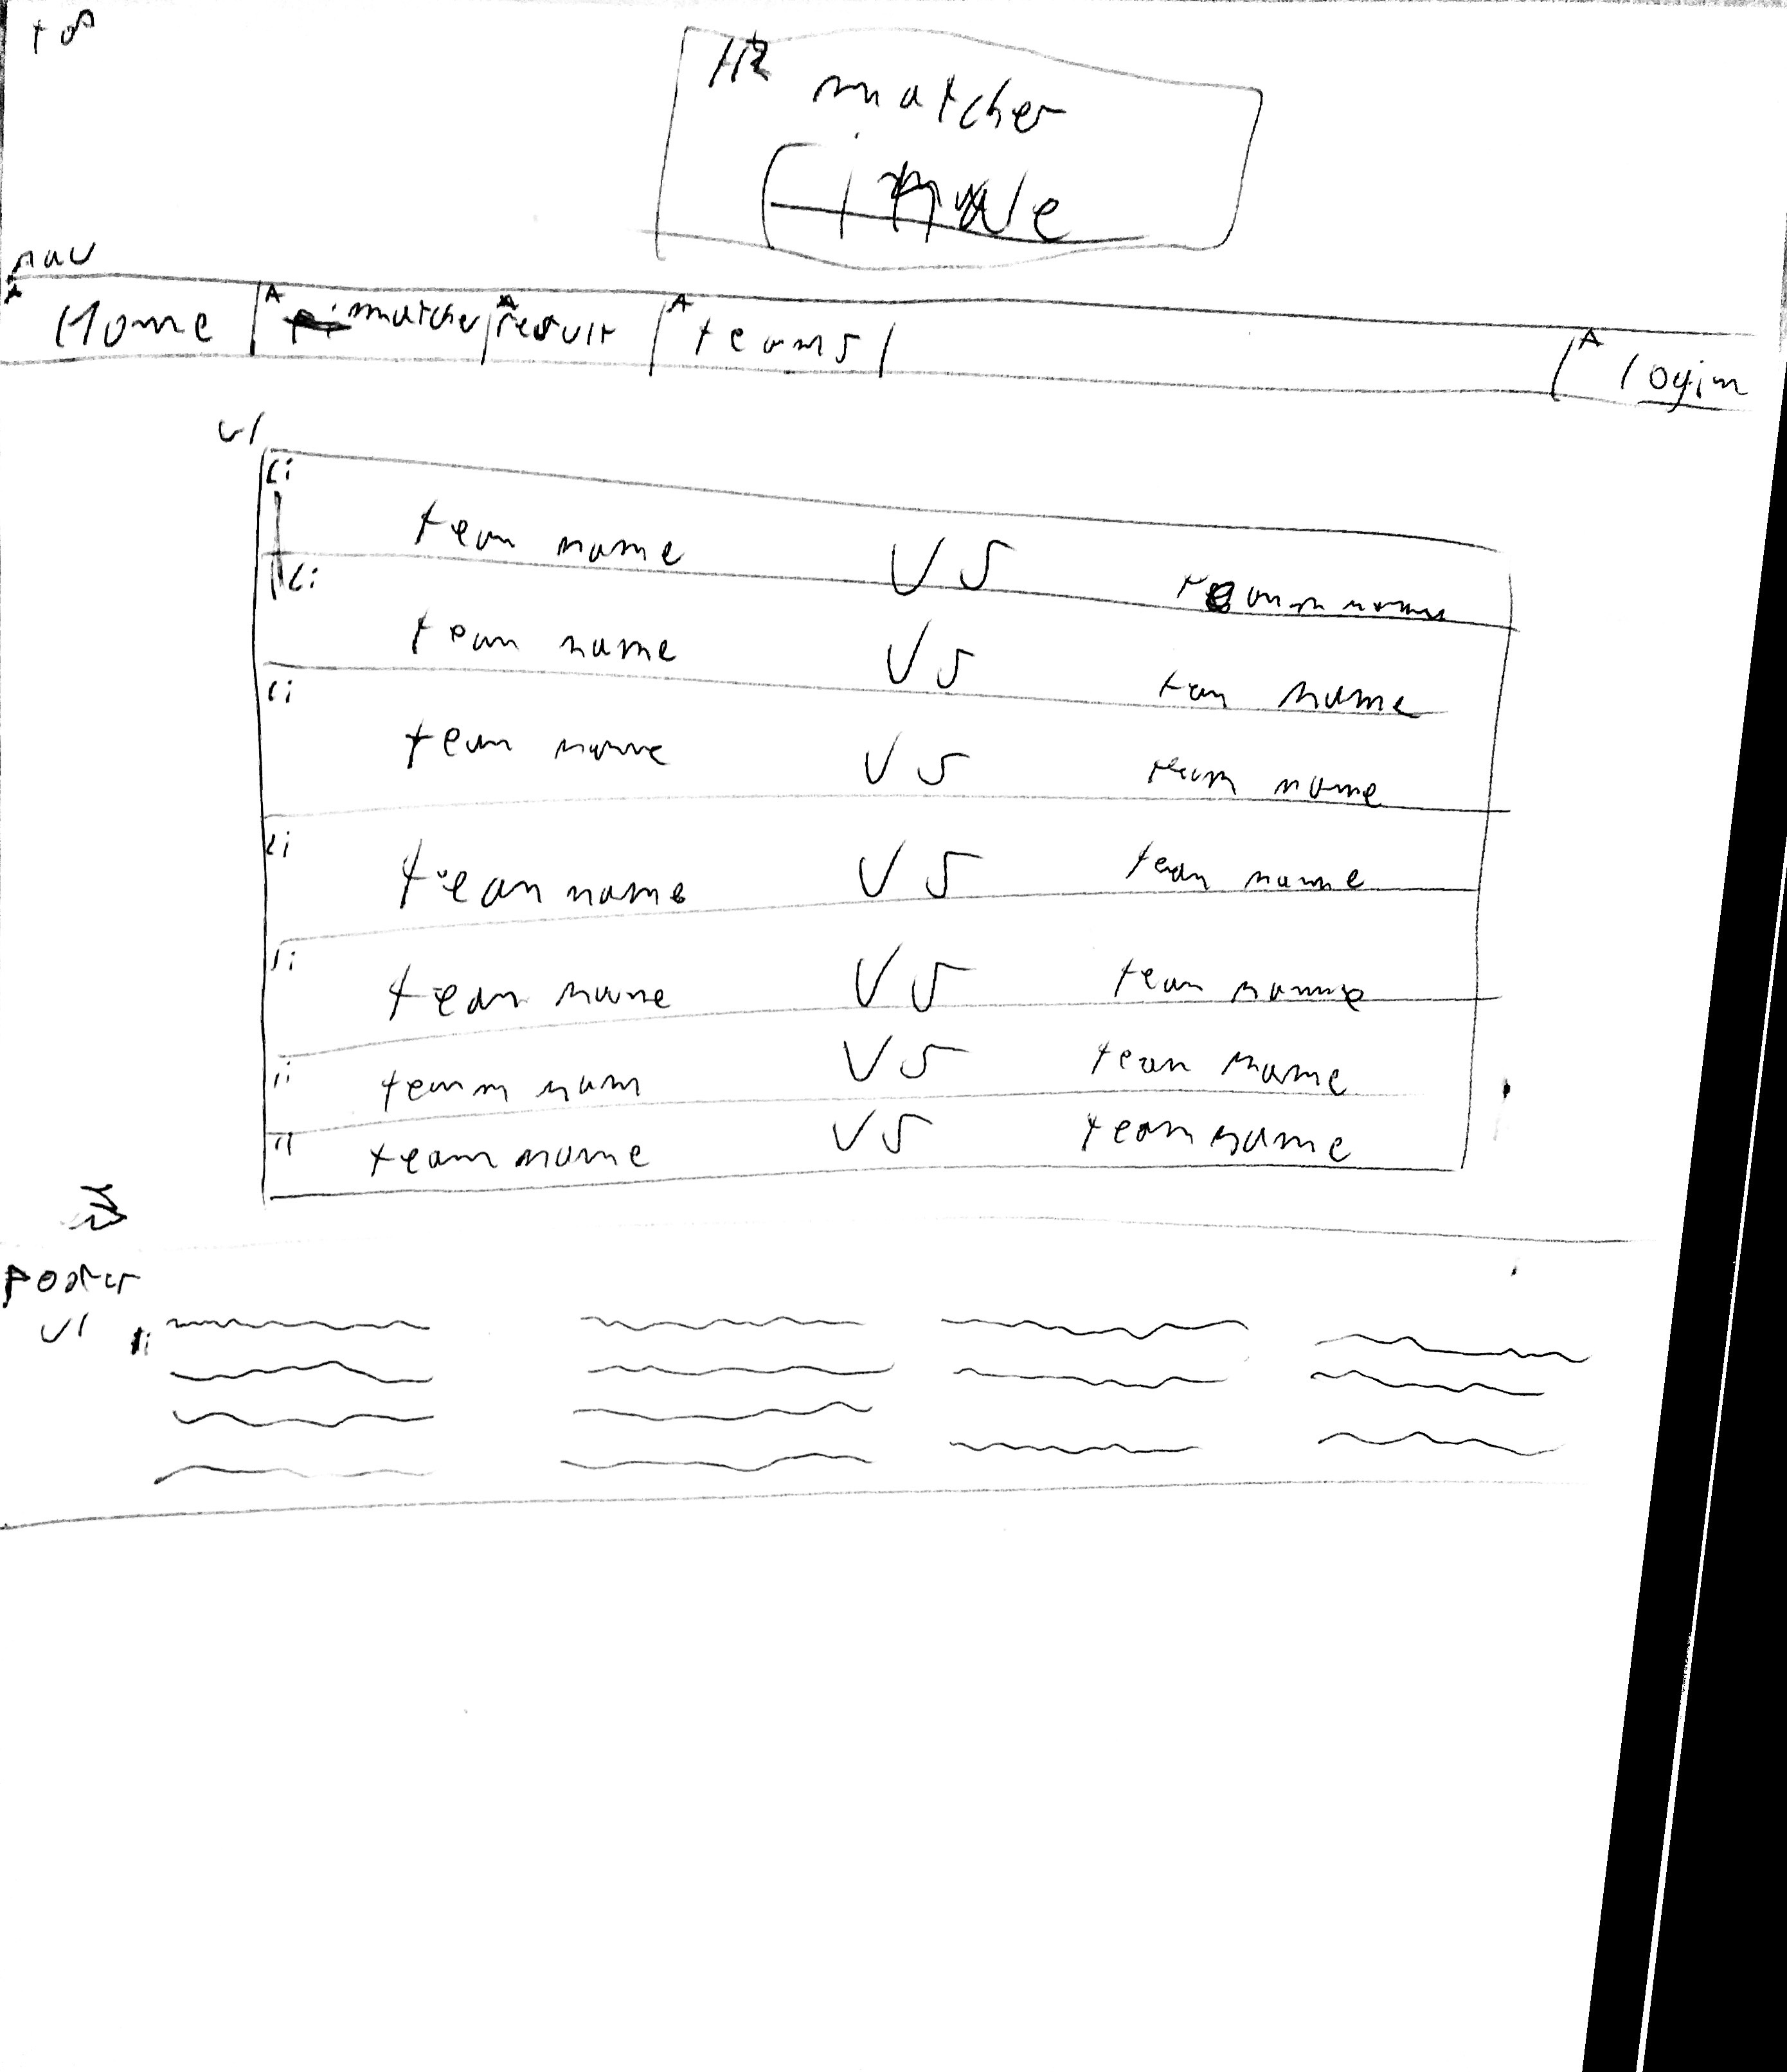 top
H2 matcher
nav
A Home A matcher A result A teams A login
ul
li
team name VS team name
li
team name VS team name
li
team name VS team name
li
team name VS team name
li
team name VS team name
li
team nam VS team name
li
team name VS team name
footer
ul li